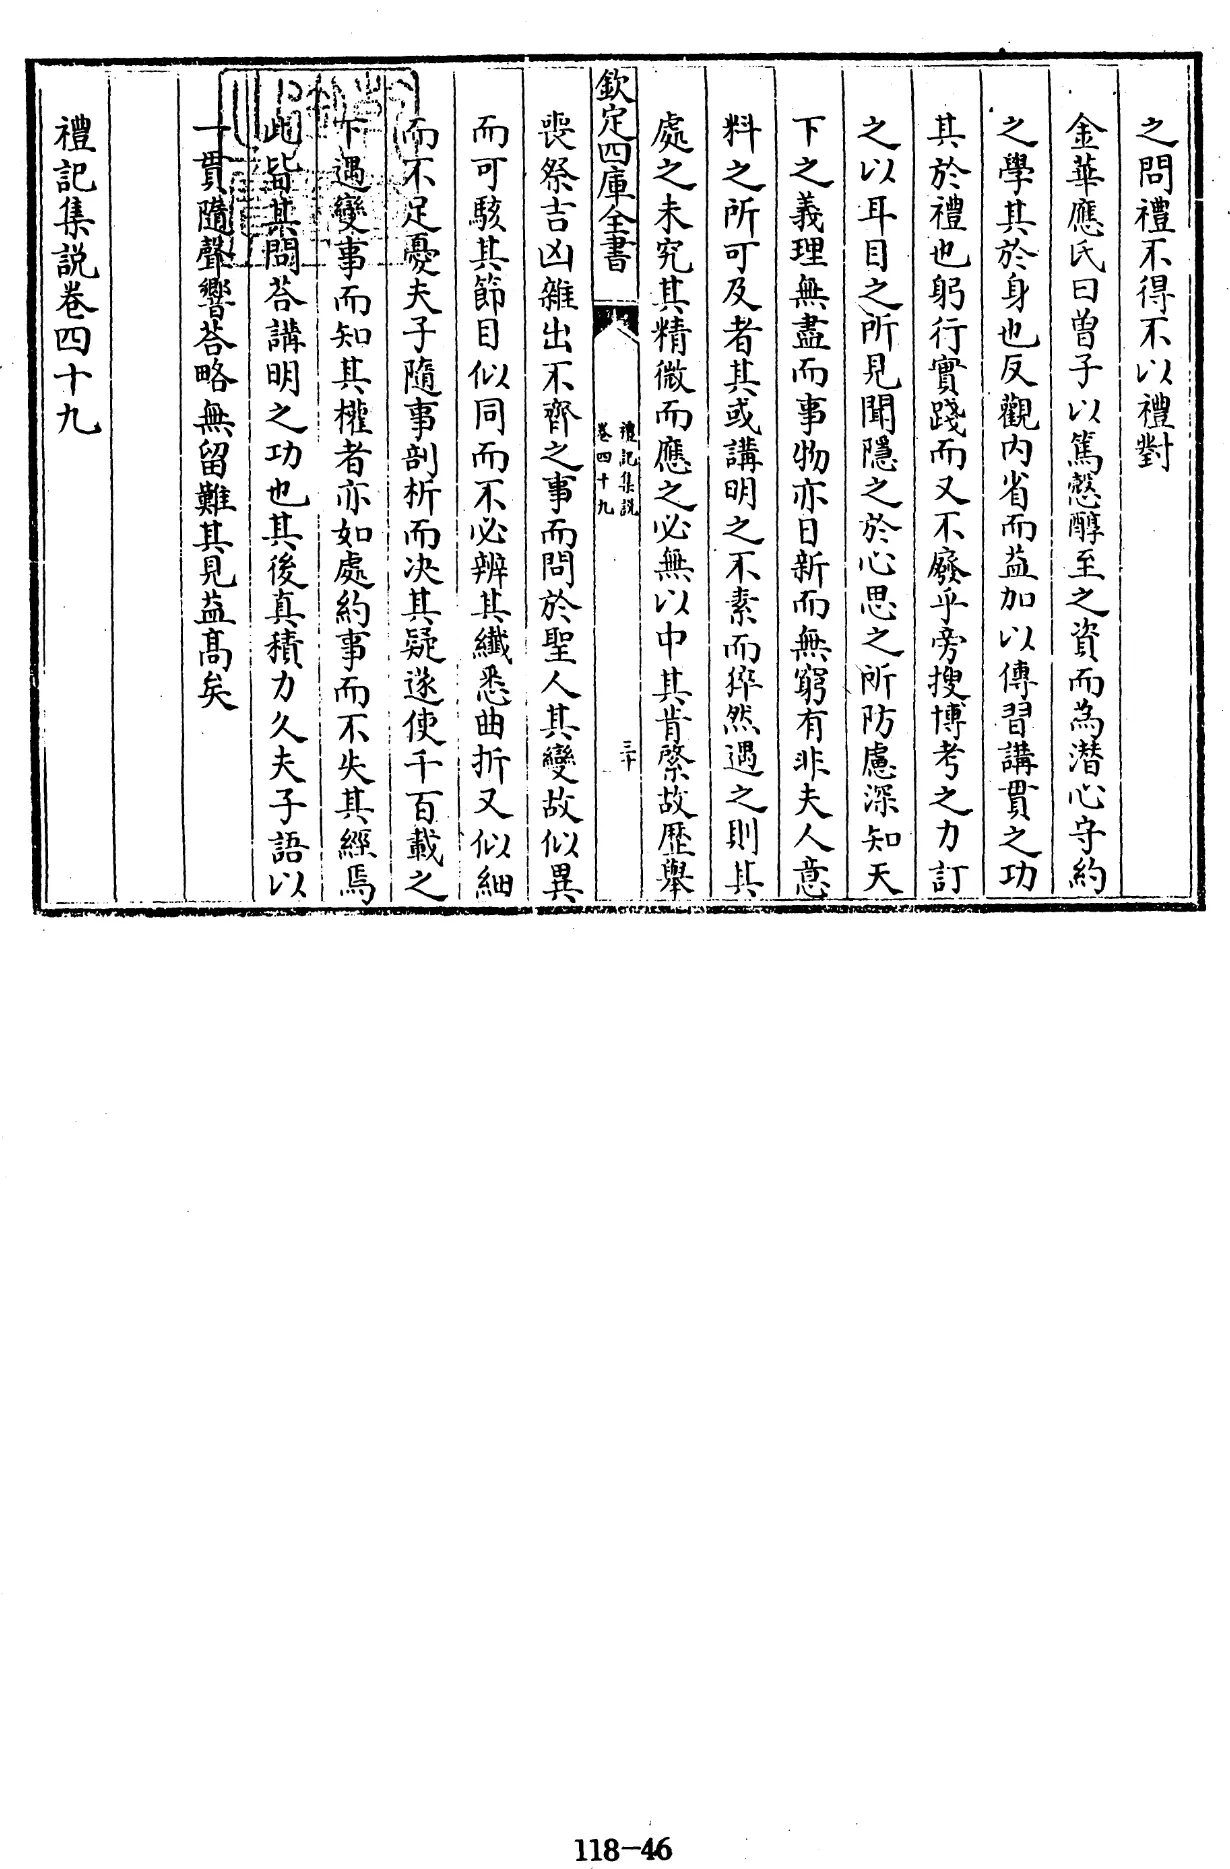 之問禮不得不以禮對
金華應氏曰曽子以篤慤醇至之資而為潜心守約
之學其於身也反觀内省而益加以傳習講貫之功
其於禮也躬行實踐而又不廢乎旁搜博考之力訂
之以耳目之所見聞隱之於心思之所防慮深知天
下之義理無盡而事物亦日新而無窮有非夫人意
料之所可及者其或講明之不素而猝然遇之則其
處之未究其精微而應之必無以中其肯綮故歴舉
欽定四庫全書
禮記集説
卷四十九
三十
喪祭吉凶雜出不齊之事而問於聖人其變故似異
而可駭其節目似同而不必辨其纖悉曲折又似細
而不足憂夫子隨事剖析而决其疑遂使千百載之
下遇變事而知其權者亦如處約事而不失其經焉
此皆其問荅講明之功也其後真積力久夫子語以
一貫隨聲響荅略無留難其見益髙矣
禮記集説卷四十九
118-46